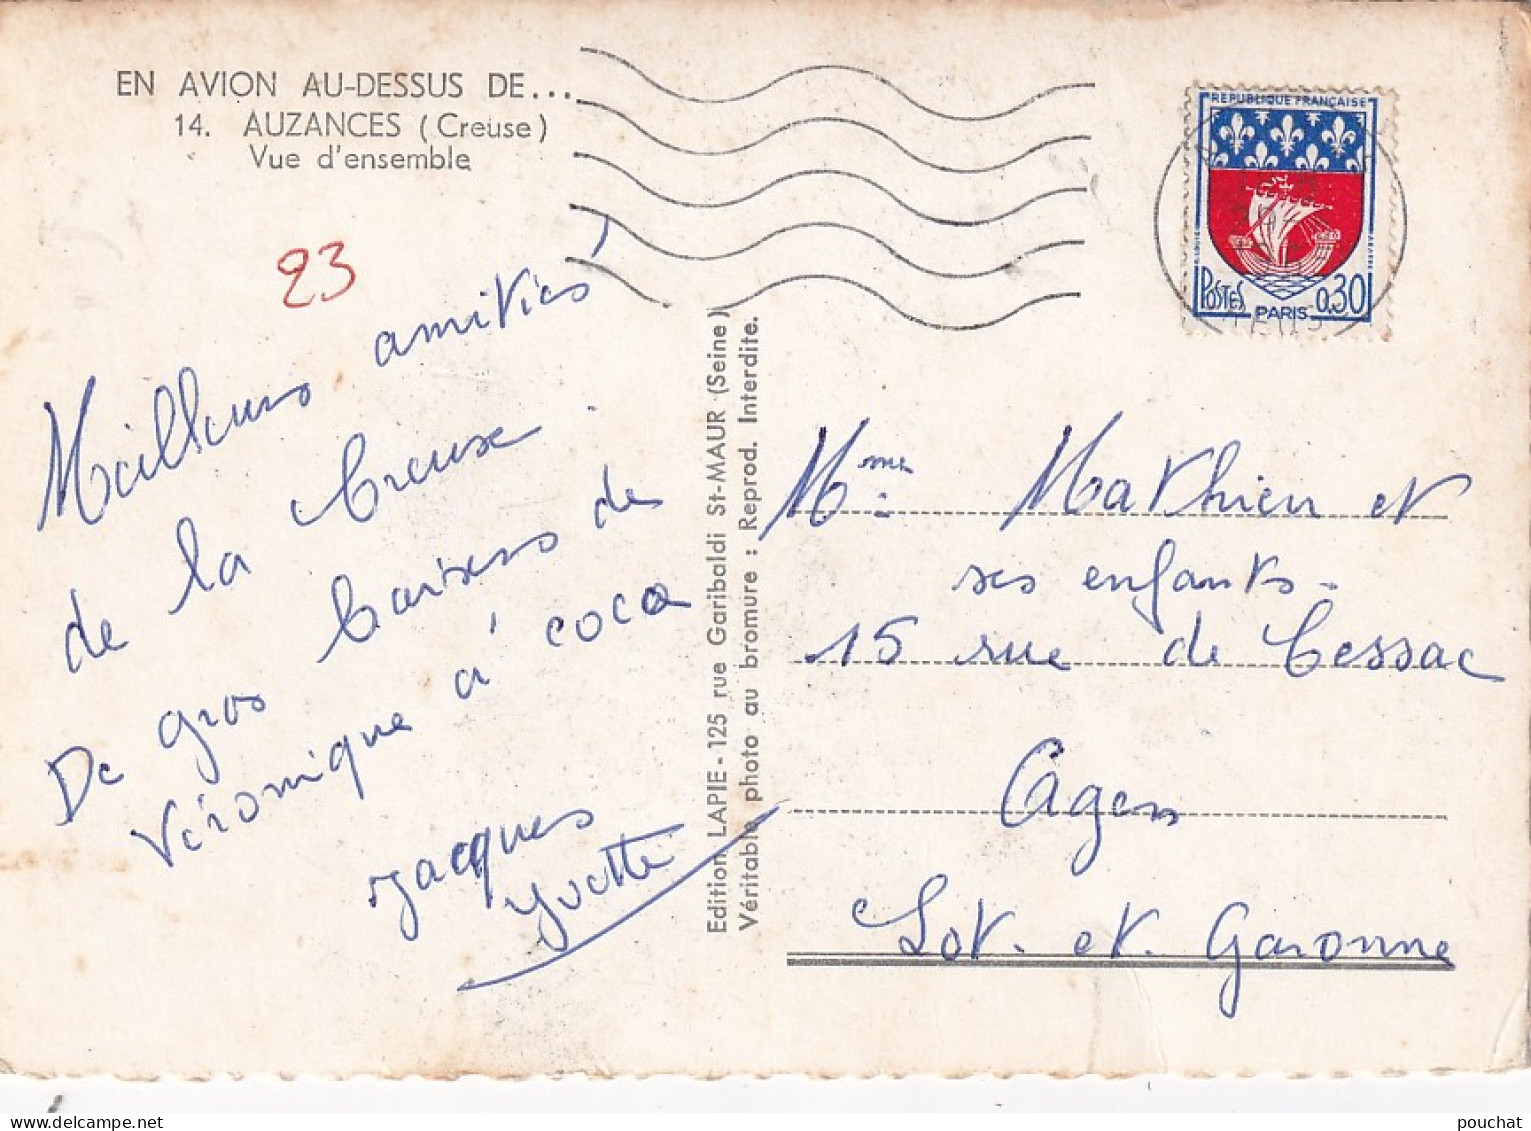 EN AVION AU-DESSUS DE...
14. AUZANCES (Creuse)
Vue d'ensemble
23
Meilleures amitiés
de la Creuse.
De gros baisers de
Véronique à coco
Jacques
Yvette
Edition LAPIE - 125 rue Garibaldi St-MAUR (Seine)
Véritable photo au bromure : Reprod. Interdite.
REPUBLIQUE FRANÇAISE
POSTES 0,30
PARIS
Mme Mathieu et
ses enfants.
15 rue de Cessac
Agen
Lot. et. Garonne
pouchat